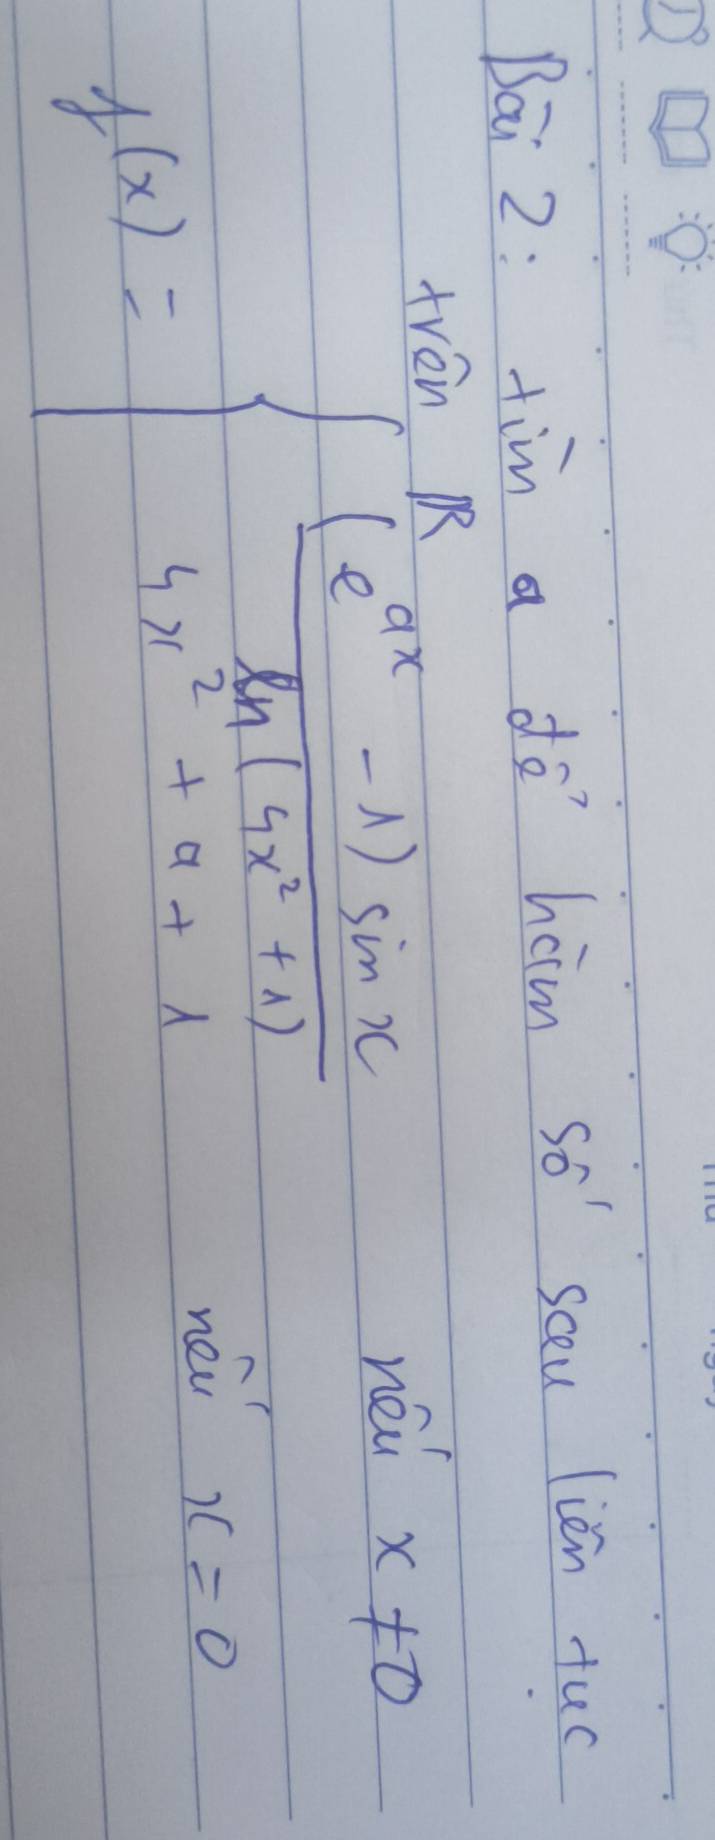 Bài 2: tìm a để hàm số sau liên tục
trên ℝ
f(x) = { (e^{ax} - 1) sin x / ln(4x² + 1) nếu x ≠ 0
4x² + a + 1 nếu x = 0